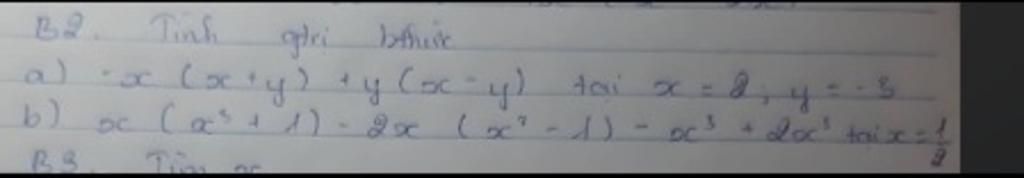 B2. Tính gtri bthức
a) -x (x + y) + y (x - y) tại x = 2, y = -3
b) x (x³ + 1) - 2x (x² - 1) - x³ + 2x³ tại x = 1/2
B3. Tìm x